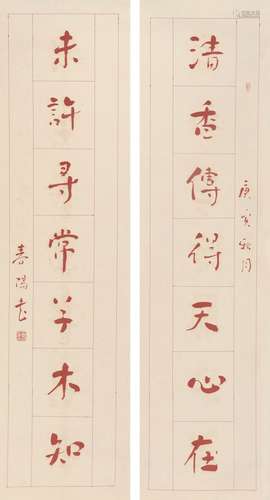 庚寅秋月
清香傳得天心在
未許尋常草木知
春陽